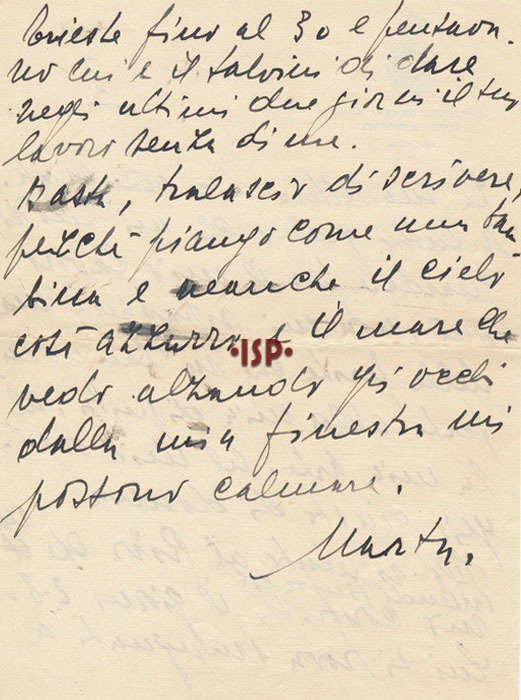 Trieste fino al 30 e pensava-
no lui e il Salvini di dare
negli ultimi due giorni il tuo
lavoro senza di me.
Basta, tralascio di scrivere,
perchè piango come una bam
bina e neanche il cielo
così azzurro e il mare che
vedo alzando gli occhi
dalla mia finestra mi
possono calmare.
Marta.
•ISP•